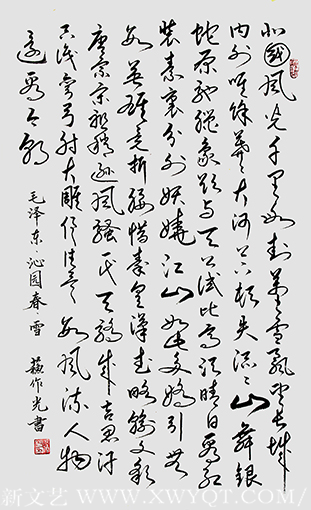 北国风光千里冰封万里雪飘望长城
内外唯馀莽莽大河上下顿失滔滔山舞银
蛇原驰蜡象欲与天公试比高须晴日看红
装素裹分外妖娆江山如此多娇引无
数英雄竞折腰惜秦皇汉武略输文彩
唐宗宋祖稍逊风骚一代天骄成吉思汗
只识弯弓射大雕俱往矣数风流人物
还看今朝
毛泽东沁园春·雪 蘇作光書
新文艺 WWW.XWYQT.COM